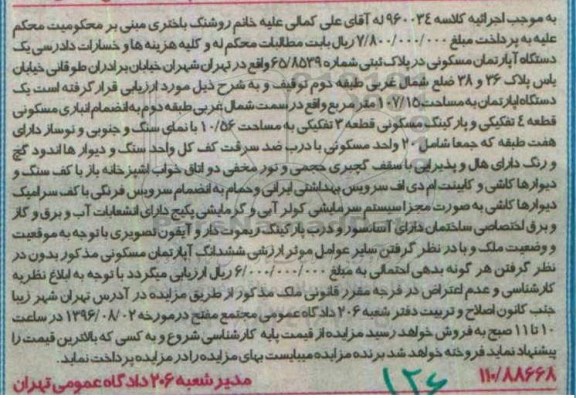 به موجب اجرائیه کلاسه ۹۶۰۰۳۴ له آقای علی کمالی علیه خانم روشنک باختری مبنی بر محکومیت محکم
علیه به پرداخت مبلغ ۷/۸۰۰/۰۰۰/۰۰۰ ریال بابت مطالبات محکم له و کلیه هزینه ها و خسارات دادرسی یک
دستگاه آپارتمان مسکونی در پلاک ثبتی شماره ۶۵/۸۵۳۹ واقع در تهران شهران خیابان برادران طوقانی خیابان
یاس پلاک ۳۶ و ۳۸ ضلع شمال غربی طبقه دوم توقیف و به شرح ذیل مورد ارزیابی قرار گرفته است یک
دستگاه اپارتمان به مساحت ۱۰۷/۱۵ متر مربع واقع در سمت شمال غربی طبقه دوم به انضمام انباری مسکونی
قطعه ٤ تفکیکی و پارکینگ مسکونی قطعه ۳ تفکیکی به مساحت ۱۰/۵۶ با نمای سنگ و جنوبی و نوساز دارای
هفت طبقه که جمعا شامل ۲۰ واحد مسکونی با درب ضد سرقت کف کل واحد سنگ و دیوار ها اندود گچ
و رنگ دارای هال و پذیرایی با سقف گچبری حجمی و نور مخفی دو اتاق خواب اشپزخانه باز با کف سنگ و
دیوارها کاشی و کابینت ام دی اف سرویس بهداشتی ایرانی و حمام به انضمام سرویس فرنگی با کف سرامیک
دیوارها کاشی به صورت مجزا سیستم سرمایشی کولر آبی و گرمایشی پکیج دارای انشعابات آب و برق و گاز
و برق اختصاصی ساختمان دارای آسانسور و درب پارکینگ ریموت دار و آیفون تصویری با توجه به موقعیت
و وضعیت ملک و با در نظر گرفتن سایر عوامل موثر ارزشی ششدانگ آپارتمان مسکونی مذکور بدون در
نظر گرفتن هر گونه بدهی احتمالی به مبلغ ۶/۰۰۰/۰۰۰/۰۰۰ ریال ارزیابی میگردد با توجه به ابلاغ نظریه
کارشناسی و عدم اعتراض در فرجه مقرر قانونی ملک مذکور از طریق مزایده در آدرس تهران شهر زیبا
جنب کانون اصلاح و تربیت دفتر شعبه ۲۰۶ دادگاه عمومی مجتمع مفتح در مورخه ۱۳۹۶/۰۸/۰۲ در ساعت
۱۰ تا ۱۱ صبح به فروش خواهد رسید مزایده از قیمت پایه کارشناسی شروع و به کسی که بالاترین قیمت را
پیشنهاد نماید فروخته خواهد شد برنده مزایده میبایست بهای مزایده را در مزایده پرداخت نماید.
۱۱۰/۸۸۶۶۸ ۱۲۶ مدیر شعبه ۲۰۶ دادگاه عمومی تهران